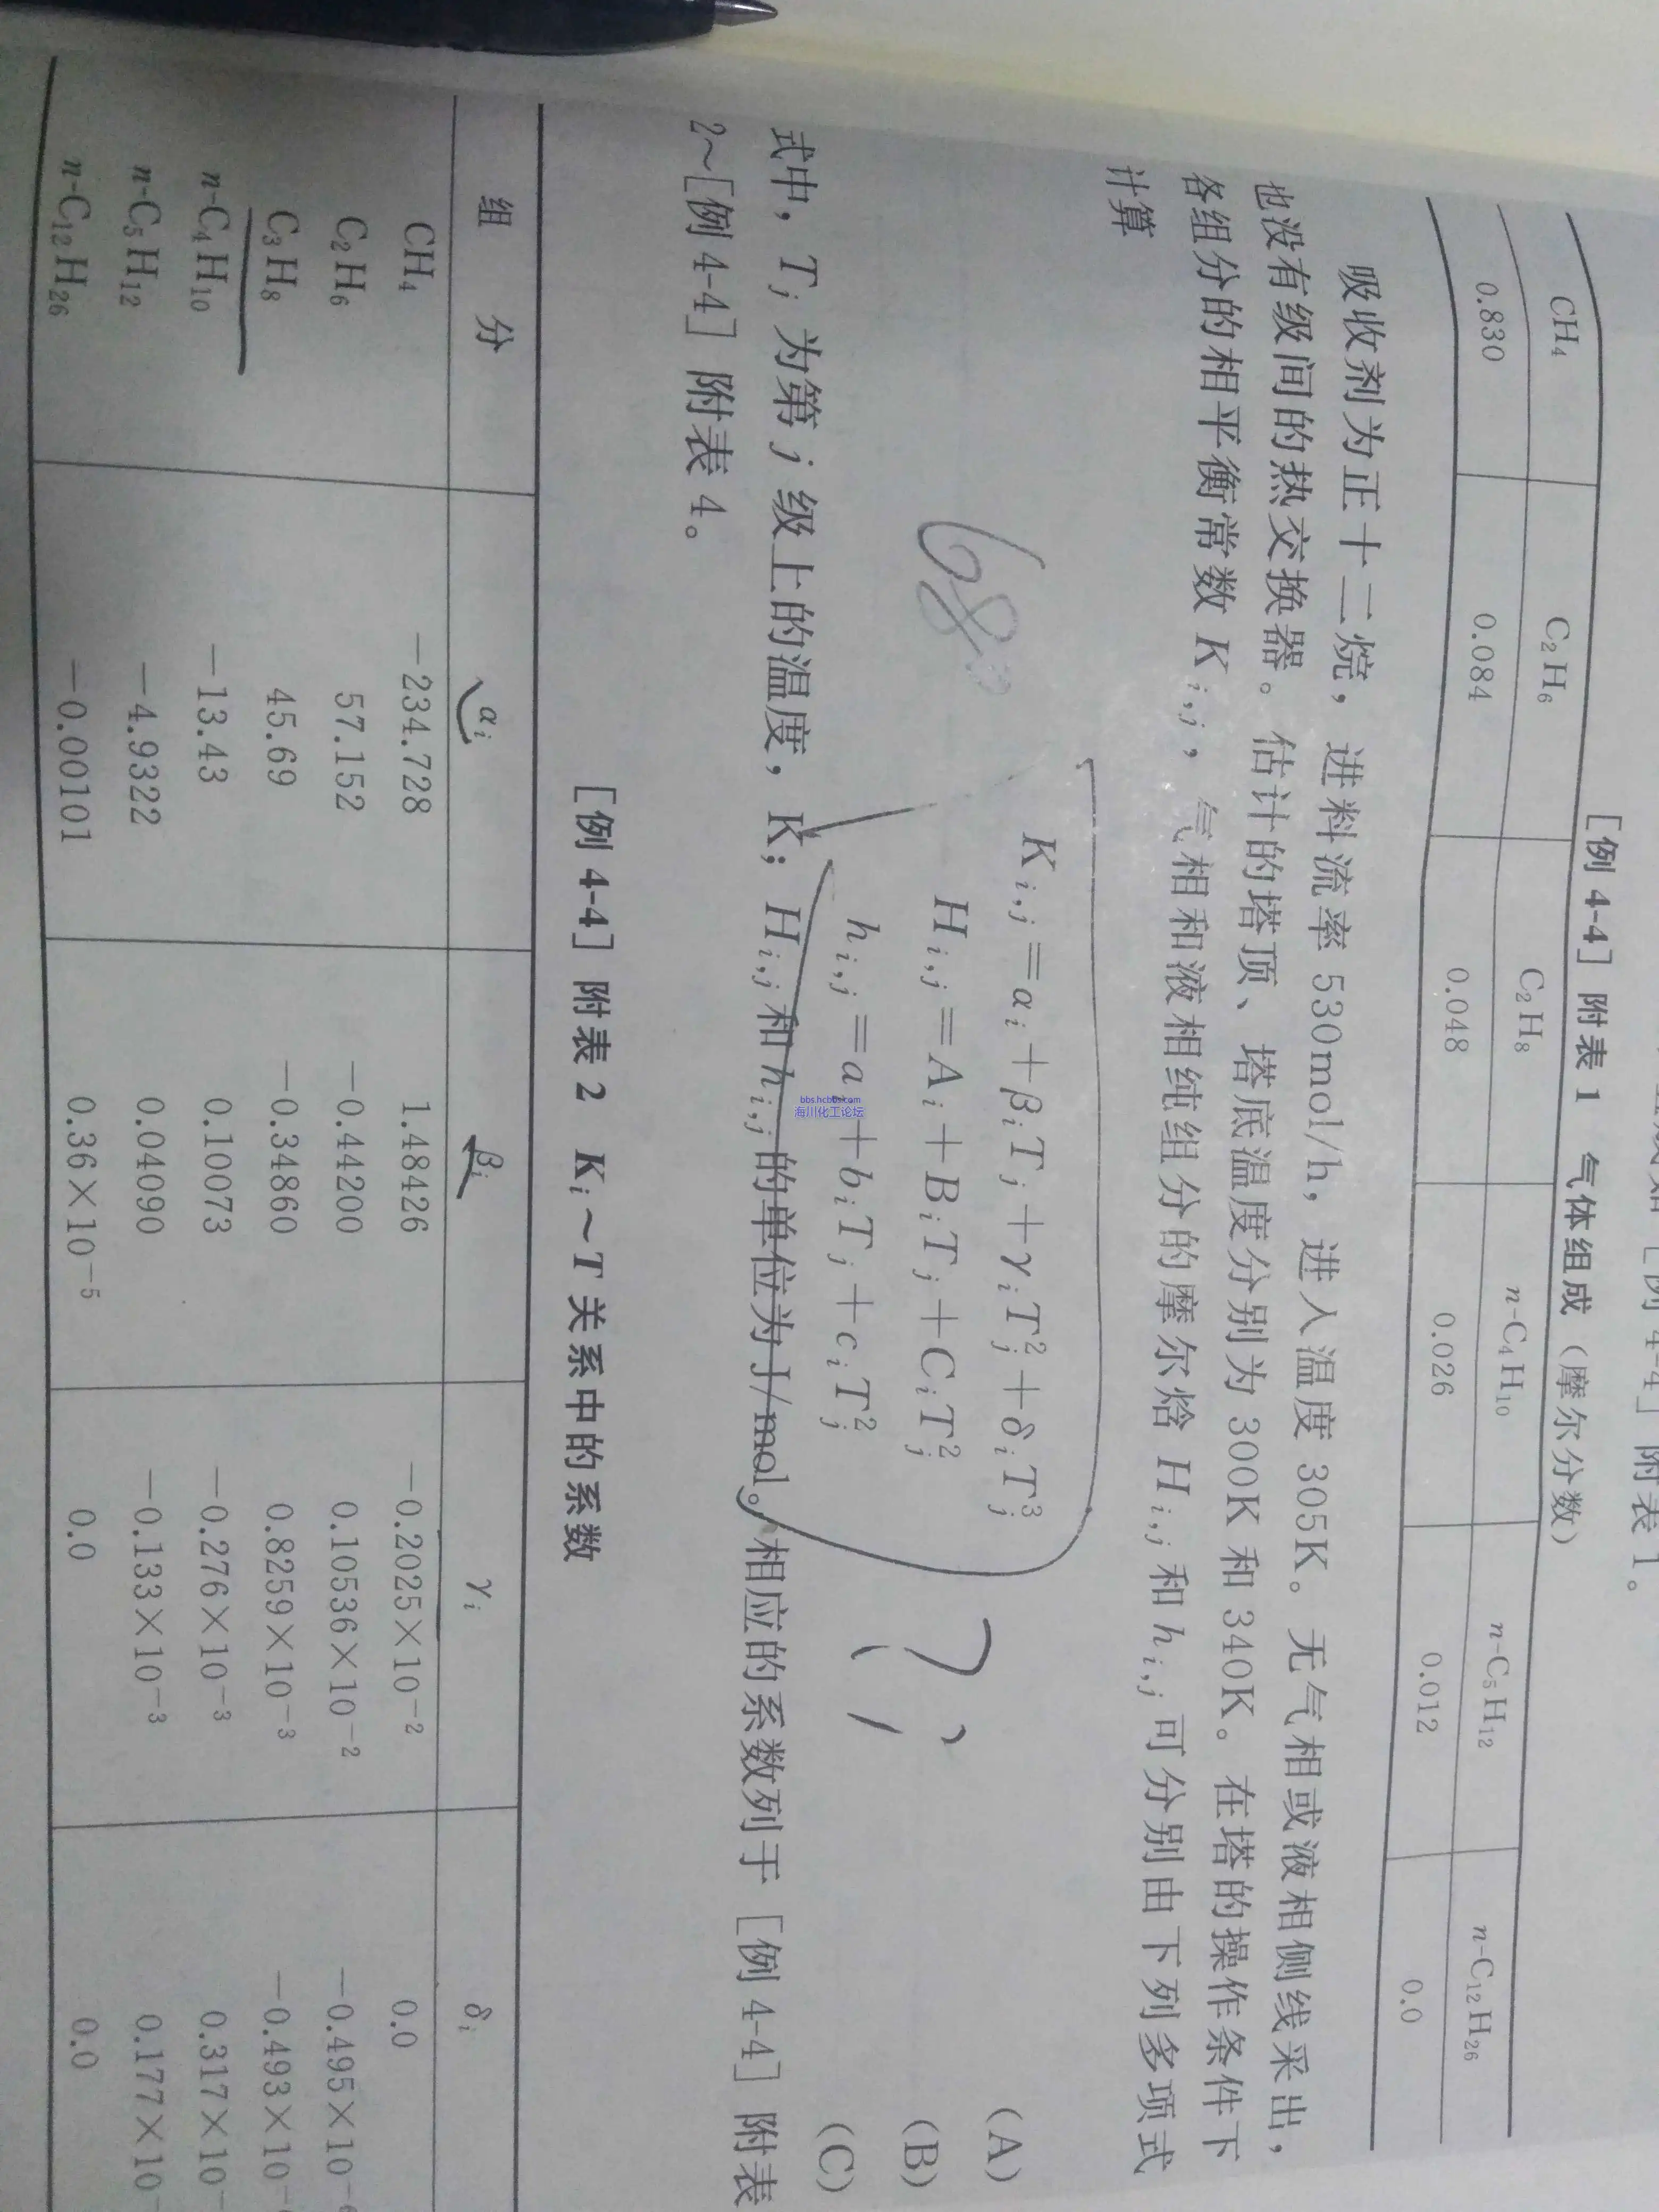 [例 4-4] 附表 1。
[例 4-4] 附表 1 气体组成（摩尔分数）
CH₄ C₂H₆ C₂H₈ n-C₄H₁₀ n-C₅H₁₂ n-C₁₂H₂₆
0.830 0.084 0.048 0.026 0.012 0.0
吸收剂为正十二烷，进料流率 530mol/h，进入温度 305K。无气相或液相侧线采出，
也没有级间的热交换器。估计的塔顶、塔底温度分别为 300K 和 340K。在塔的操作条件下
各组分的相平衡常数 Kᵢ,ⱼ，气相和液相纯组分的摩尔焓 Hᵢ,ⱼ 和 hᵢ,ⱼ 可分别由下列多项式
计算
Kᵢ,ⱼ=αᵢ+βᵢTⱼ+γᵢTⱼ²+δᵢTⱼ³ (A)
Hᵢ,ⱼ=Aᵢ+BᵢTⱼ+CᵢTⱼ² (B)
hᵢ,ⱼ=a+bᵢTⱼ+cᵢTⱼ² (C)
68
?
bbs.hcbbs.com
海川化工论坛
式中，Tⱼ 为第 j 级上的温度，K；Hᵢ,ⱼ 和 hᵢ,ⱼ 的单位为 J/mol。相应的系数列于 [例 4-4] 附表
2～[例 4-4] 附表 4。
[例 4-4] 附表 2 Kᵢ～T 关系中的系数
组 分 αᵢ βᵢ γᵢ δᵢ
CH₄ −234.728 1.48426 −0.2025×10⁻² 0.0
C₂H₆ 57.152 −0.44200 0.10536×10⁻² −0.495×10⁻⁶
C₃H₈ 45.69 −0.34860 0.8259×10⁻³ −0.493×10⁻
n-C₄H₁₀ −13.43 0.10073 −0.276×10⁻³ 0.317×10⁻
n-C₅H₁₂ −4.9322 0.04090 −0.133×10⁻³ 0.177×10⁻
n-C₁₂H₂₆ −0.00101 0.36×10⁻⁵ 0.0 0.0